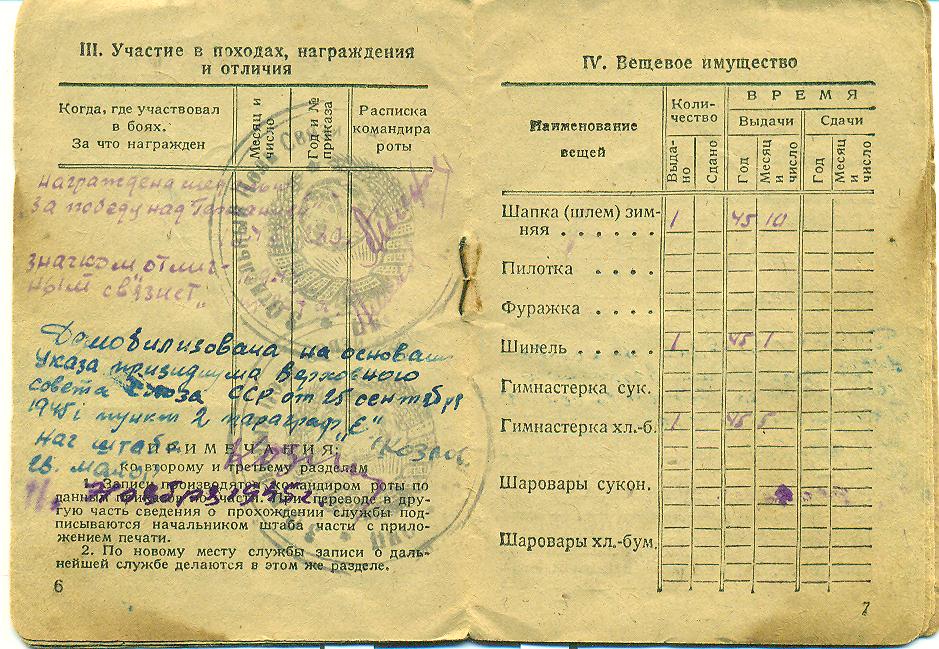 III. Участие в походах, награждения
и отличия
Когда, где участвовал
в боях.
За что награжден
Месяц и
число
Год и №
приказа
Расписка
командира
роты
награждена
за победу над
значком „отлич-
ный связист"
Домобилизована на основан
указа призидиума Верховного
совета Союза ССР от 25 сентября
1945г пункт 2 параграф „Е"
нач штаба
ПРИМЕЧАНИЯ:
ко второму и третьему разделам
Записи производятся командиром роты по
данным приказов по части. При переводе в дру-
гую часть сведения о прохождении службы под-
писываются начальником штаба части с прило-
жением печати.
2. По новому месту службы записи о даль-
нейшей службе делаются в этом же разделе.
6
IV. Вещевое имущество
Наименование
вещей
Коли-
чество
ВРЕМЯ
Выдачи
Сдачи
Выда-
но
Сдано
Год
Месяц
и
число
Год
Месяц
и
число
Шапка (шлем) зим-
няя . . . . . . 1 45 10
Пилотка . . . .
Фуражка . . . .
Шинель . . . . . 1 45 1
Гимнастерка сук.
Гимнастерка хл.-б. 1 45 5
Шаровары сукон.
Шаровары хл.-бум.
7